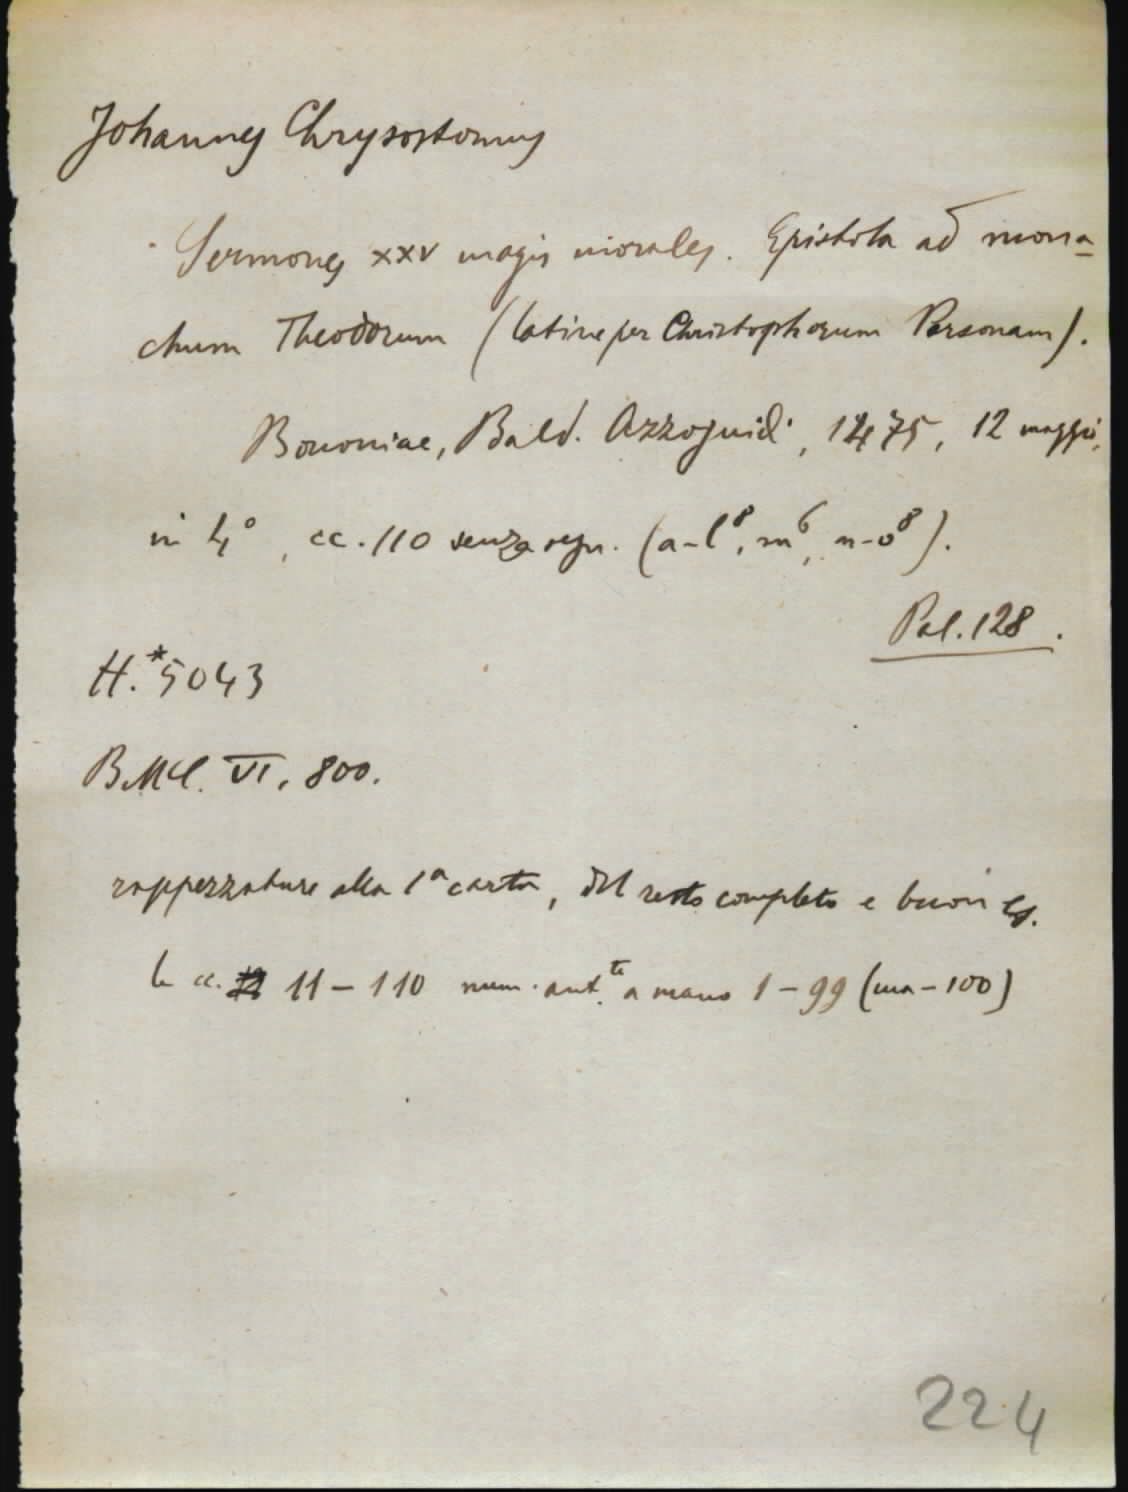 Johannes Chrysostomus
Sermones XXV magis morales. Epistola ad mona-
chum Theodorum (latine per Christophorum Personam).
Bononiae, Bald. Azzoguidi, 1475, 12 maggio,
in 4°, cc. 110 senza segn. (a-l⁸, m⁶, n-o⁸).
Pal. 128.
H.*5043
BMC. VI, 800.
rappezzature alla 1ª carta, del resto completo e buon es.
le cc. 11-110 num. ant.te a mano 1-99 (ma-100)
224